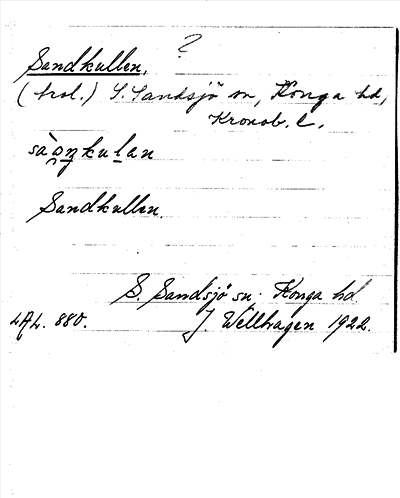 ?
Sandkullen,
(trol.) S. Sandsjö sn, Konga hd,
Kronob. l.
Sandkullen.
S. Sandsjö sn. Konga hd
LAL. 880. J. Wellhagen 1922.